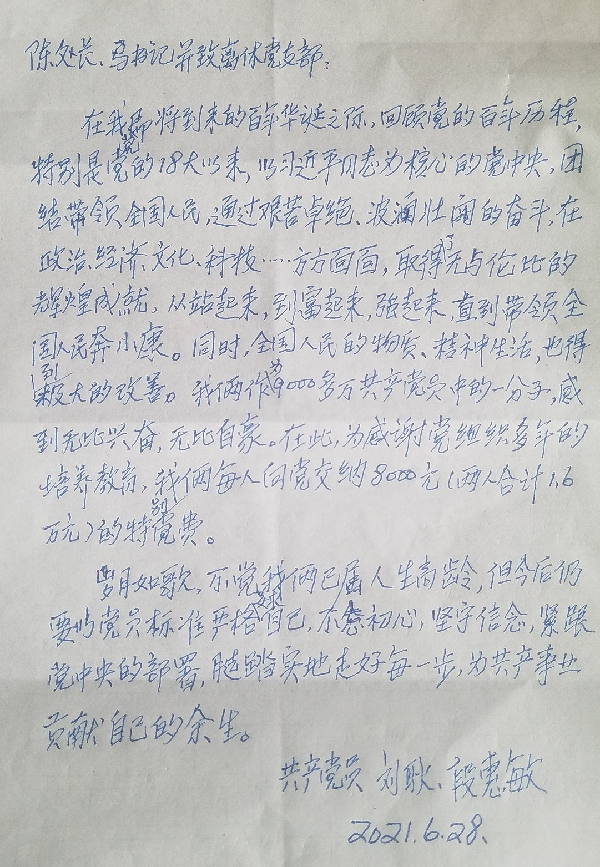 陈处长、马书记并致离休党支部：
在我党即将到来的百年华诞之际，回顾党的百年历程，
特别是党的18大以来，以习近平同志为核心的党中央，团
结带领全国人民，通过艰苦卓绝、波澜壮阔的奋斗，在
政治、经济、文化、科技……方方面面，取得了无与伦比的
辉煌成就，从站起来，到富起来，强起来直到带领全
国人民奔小康。同时，全国人民的物质、精神生活，也得
到极大的改善。我俩作为9000多万共产党员中的一分子，感
到无比兴奋，无比自豪。在此，为感谢党组织多年的
培养教育，我俩每人向党交纳8000元（两人合计1.6
万元）的特别党费。
岁月如歌，不觉我俩已届人生高龄，但今后仍
要以党员标准严格要求自己，不忘初心，坚守信念，紧跟
党中央的部署，脚踏实地走好每一步，为共产事业
贡献自己的余生。
共产党员 刘耿、段惠敏
2021.6.28.